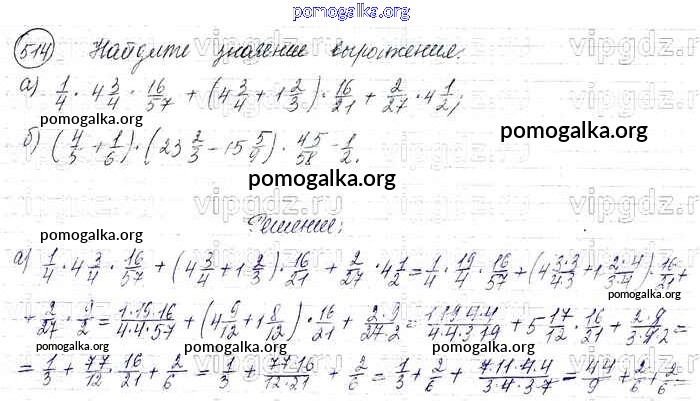 pomogalka.org
514 Найдите значение выражения.
а) 1/4 · 4 3/4 · 16/57 + (4 3/4 + 1 2/3) · 16/21 + 2/27 · 4 1/2;
б) (4/5 + 1/6) · (23 2/3 - 15 5/9) · 45/58 - 1/2.
pomogalka.org
pomogalka.org
vipgdz.ru
Решение:
pomogalka.org
а) 1/4 · 4 3/4 · 16/57 + (4 3/4 + 1 2/3) · 16/21 + 2/27 · 4 1/2 = 1/4 · 19/4 · 16/57 + (4 3·3/4·3 + 1 2·4/3·4) · 16/21 +
pomogalka.org
pomogalka.org
+ 2/27 · 9/2 = 1·19·16/4·4·57 + (4 9/12 + 1 8/12) · 16/21 + 2·9/27·2 = 1·19·4·4/4·4·3·19 + 5 17/12 · 16/21 + 2·9/3·9·2 =
pomogalka.org
pomogalka.org
= 1/3 + 77/12 · 16/21 + 2/6 = 1/3 + 77·16/12·21 + 2/6 = 1/3 + 2/6 + 7·11·4·4/3·4·3·7 = 44/9 + 2/6 + 2/6 =